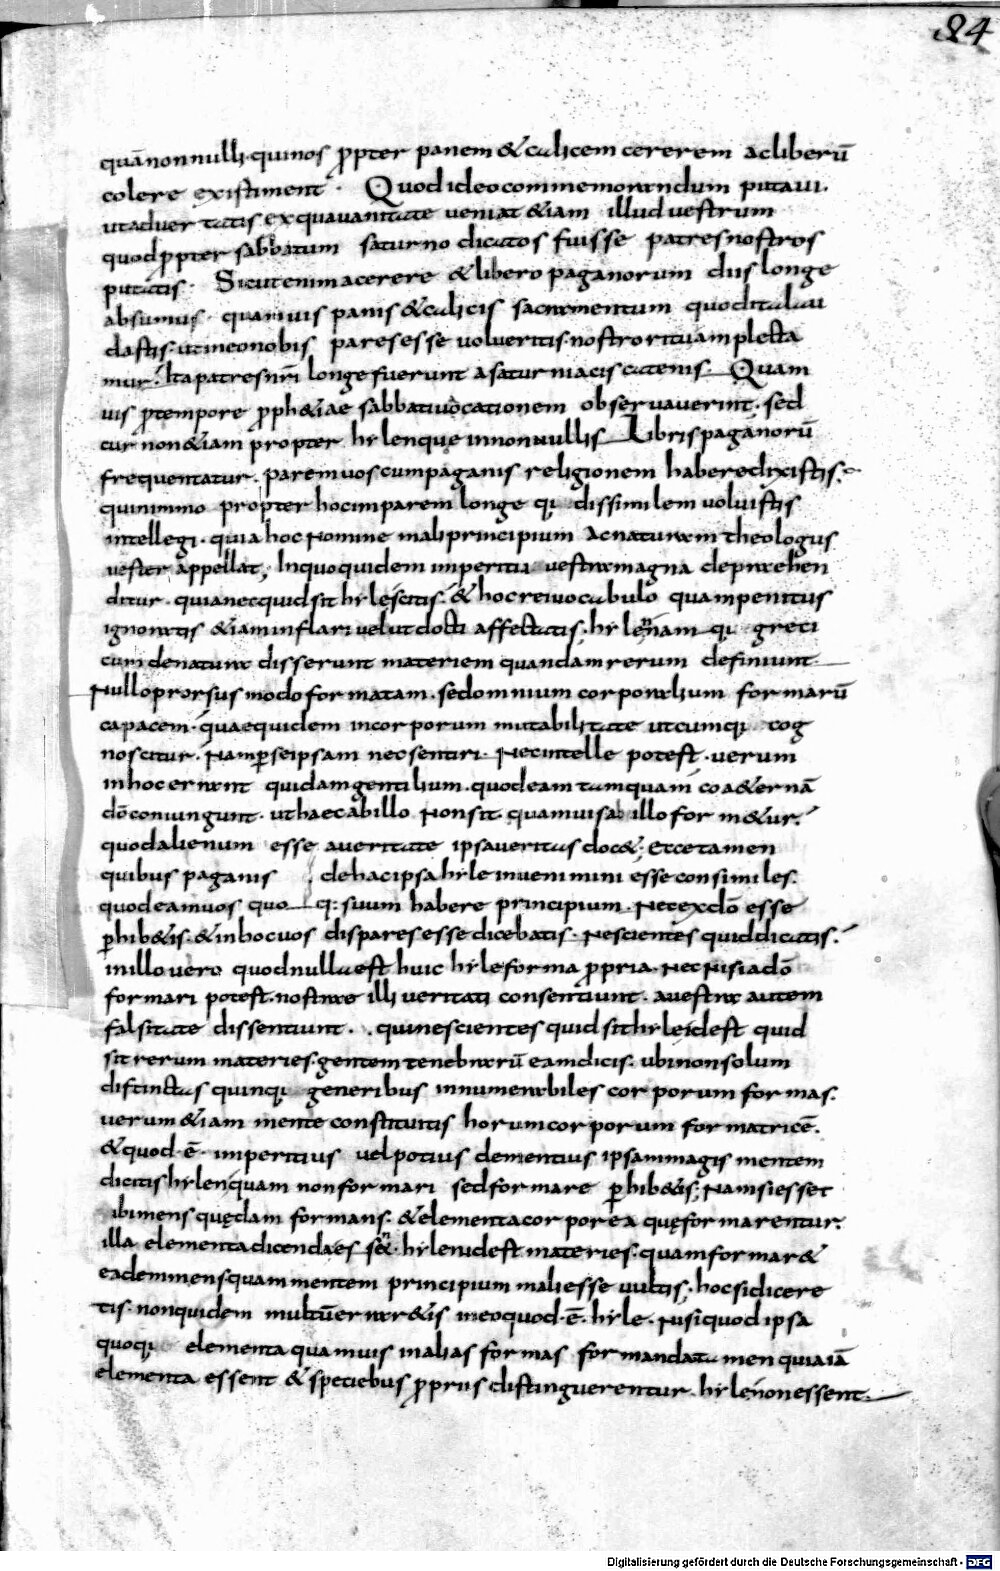 84
quā nonnulli quinos ꝓpter panem & calicem cererem acliberū
colere existiment. Quodideocommemorandum putaui.
utaduertatis exquauanitate ueniat &iam illud uestrum
quodꝓpter sabbatum saturno dicatos fuisse patresnostros
putatis. Sicutenimacerere &libero paganorum diis longe
absumus. quamuis panis &calicis sacramentum quoditalau
dastis. utineonobis paresesse uolueritis. nostrorituamplecta
mur. Itapatresnr̄i longefuerunt asaturniaciscatenis. Quam
uis ꝓtempore ꝓph&iae sabbatiuocationem obseruauerint. sed
cur non&iam propter hylenque innonnullis Librispaganorū
frequentatur. paremuoscumpaganis religionem haberedixistis.
quinimmo propter hocimparem longe q; dissimilem uoluistis
intellegi. quia hocnomine maliprincipium acnaturam theologus
uester appellat; Inquoquidem imperitia uestramagna deprehen
ditur. quianecquidsit hylescitis. & hocreiuocabulo quampenitus
ignoratis &iaminflari uelutdocti affectatis; hylennam q; greci
cum denatura disserunt materiem quandamrerum definiunt.
Nulloprorsus modo formatam. sedomnium corporalium formarū
capacem. quaequidem incorporum mutabilitate utcumq; cog
noscitur. Namꝑseipsam necsentiri. Necintelle potest. uerum
inhocerrant quidamgentilium. quodeam tamquam coa&ernā
dōconiungunt. uthaecabillo Nonsit. quamuisab illoform&ur.
quodalienum esse aueritate ipsaueritas doc&; Eccetamen
quibus paganis dehacipsa hyle inuenimini esseconsimiles.
quodeamuos quoq; suum habere principium. Netexdō esse
ꝑhib&is. &inhocuos disparesesse dicebatis. Nescientes quiddicatis.
inillo uero quodnullaest huic hyleforma ꝓpria. Necnisiadō
formari potest. nostrae illi ueritati consentiunt. auestra autem
falsitate dissentiunt. quinescientes quid sithyleidest quid
sit rerum materies. gentem tenebrarū eamdicis. ubinonsolum
distinctas quinq; generibus innumerabiles corporum formas.
uerum &iam mente constituitis horumcorporum formatricē.
&quod. ē. imperitius uel potius dementius ipsammagis mentem
dicitishylenquam nonformari sedformare ꝑhib&is; Namsiesset
ibimens quędam formans. &elementacorporea quęformarentur.
illa elementadicendaes sen&. hylenidest materies. quamformar&
eademmensquammentem principium maliesse uultis; hocsidicere
tis. nonquidem multūerrar&is ineoquod. ē. hyle. Nisiquod ipsa
quoq; elementa quamuis inalias formas formandatamen quiaiā
elementa essent & speciebus ꝓpriis distinguerentur. hylenonessent.
Digitalisierung gefördert durch die Deutsche Forschungsgemeinschaft - DFG